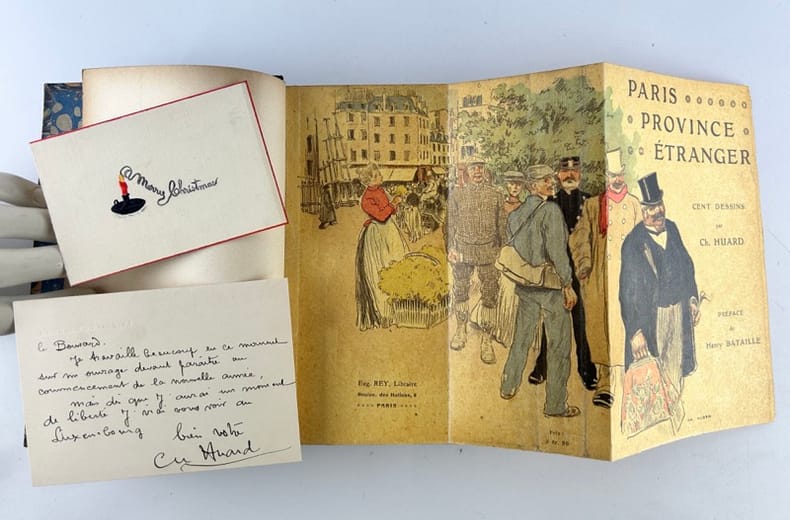 Merry Christmas
Bonvard.
Je travaille beaucoup en ce moment
sur un ouvrage devant paraître au
commencement de la nouvelle année,
mais dès que j'aurai un moment
de liberté j'irai vous voir au
Luxembourg
bien votre
Ch Huard
Eug. REY, Libraire
Boulev. des Italiens, 8
PARIS
Prix :
3 fr. 50
PARIS
PROVINCE
ÉTRANGER
CENT DESSINS
par
Ch. HUARD
PRÉFACE
de
Henry BATAILLE
CH HUARD